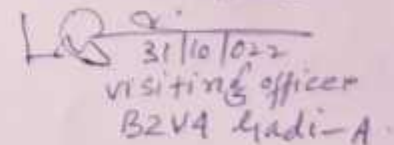 31/10/022
visiting officer
B2V4 Gadi-A